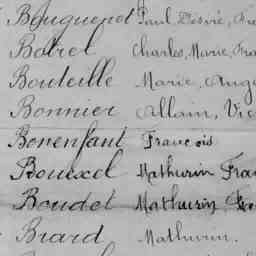 Bouquenet Paul, Désiré,
Botrel Charles, Marie, Fra
Bouteille Marie, Ang
Bonnier Allain, Vic
Bonenfant Francois
Bouexel Mathurin Fra
Boudet Mathurin
Briard Mathurin.